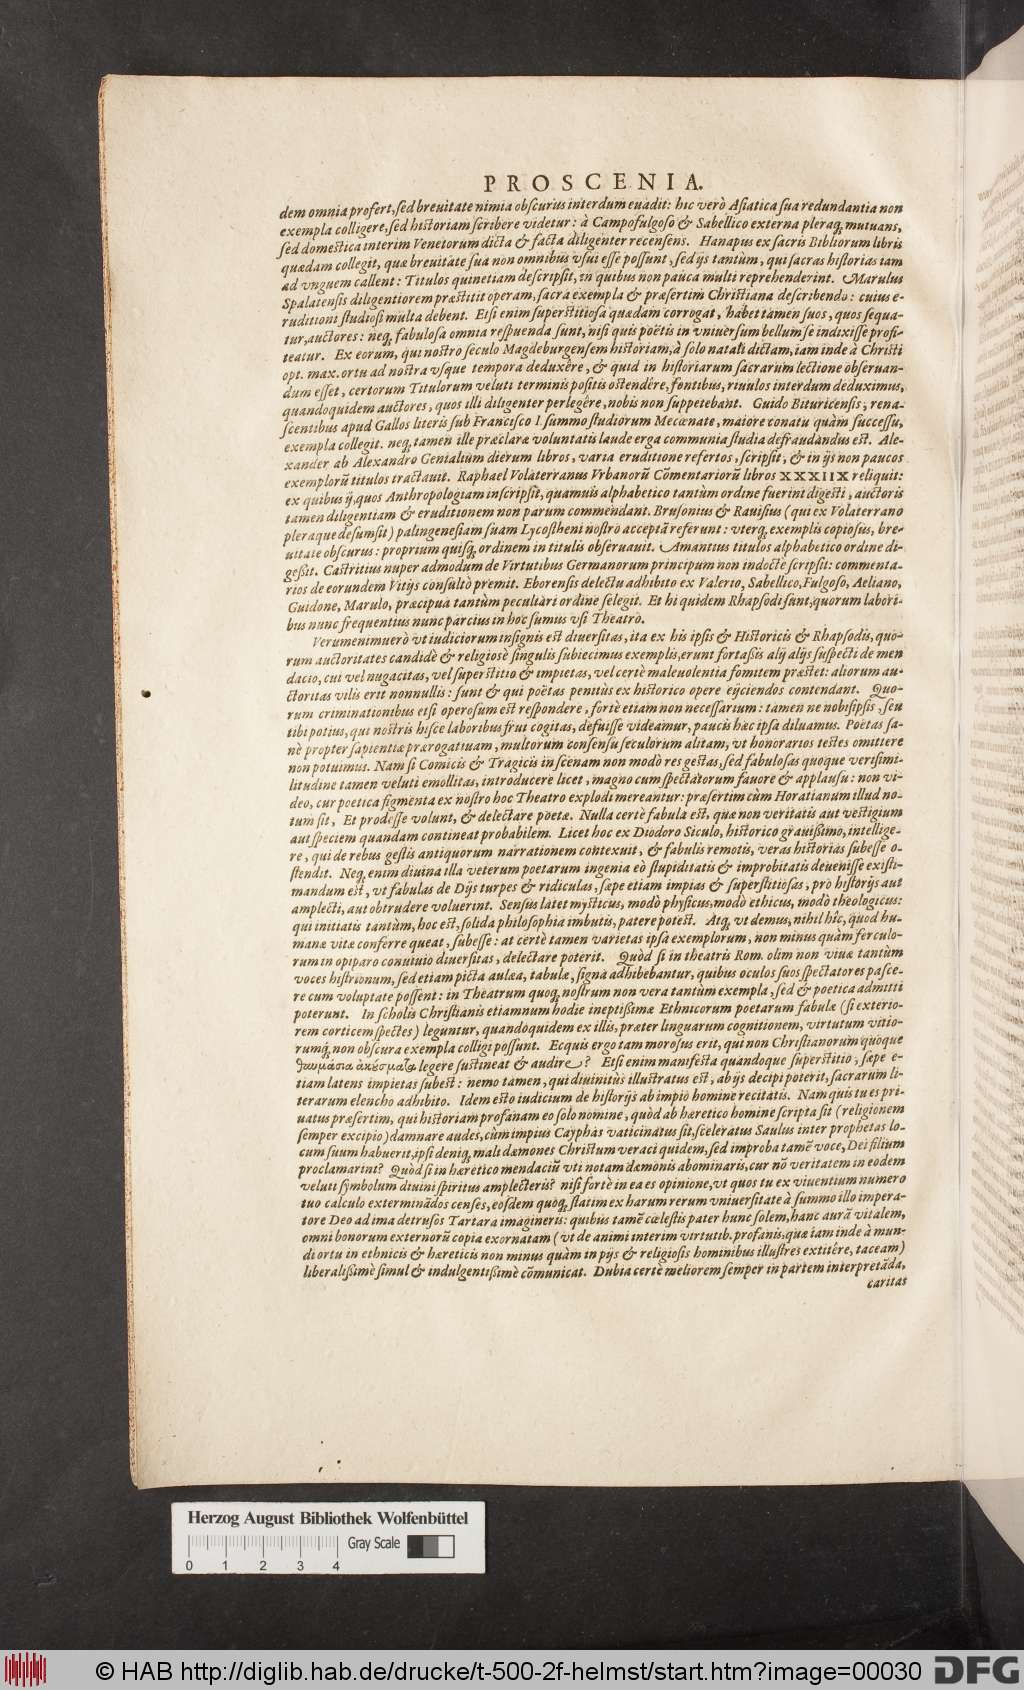 PROSCENIA.
dem omnia profert, sed breuitate nimia obscurius interdum euadit: hic verò Asiatica sua redundantia non
exempla colligere, sed historiam scribere videtur: à Campofulgoso & Sabellico externa pleraq; mutuans,
sed domestica interim Venetorum dicta & facta diligenter recensens. Hanapus ex sacris Bibliorum libris
quædam collegit, quæ breuitate sua non omnibus vsui esse possunt, sed ijs tantùm, qui sacras historias tam
ad vnguem callent: Titulos quinetiam descripsit, in quibus non pauca multi reprehenderint. Marulus
Spalatensis diligentiorem præstitit operam, sacra exempla & præsertim Christiana describendo: cuius e-
ruditioni studiosi multa debent. Etsi enim superstitiosa quædam corrogat, habet tamen suos, quos sequa-
tur, auctores: neq; fabulosa omnia respuenda sunt, nisi quis poëtis in vniuersum bellum se indixisse profi-
teatur. Ex eorum, qui nostro seculo Magdeburgensem historiam, à solo natali dictam, iam inde à Christi
opt. max. ortu ad nostra vsque tempora deduxêre, & quid in historiarum sacrarum lectione obseruan-
dum esset, certorum Titulorum veluti terminis positis ostendêre, fontibus, riuulos interdum deduximus,
quandoquidem auctores, quos illi diligenter perlegêre, nobis non suppetebant. Guido Bituricensis, rena-
scentibus apud Gallos literis sub Francisco I. summo studiorum Mecœnate, maiore conatu quàm successu,
exempla collegit. neq; tamen ille præclaræ voluntatis laude erga communia studia defraudandus est. Ale-
xander ab Alexandro Genialium dierum libros, varia eruditione refertos, scripsit, & in ijs non paucos
exemplorū titulos tractauit. Raphael Volaterranus Vrbanorū Cōmentariorū libros XXXIIX reliquit:
ex quibus ij, quos Anthropologiam inscripsit, quamuis alphabetico tantùm ordine fuerint digesti, auctoris
tamen diligentiam & eruditionem non parum commendant. Brusonius & Rauisius (qui ex Volaterrano
pleraque desumsit) palingenesiam suam Lycostheni nostro acceptā referunt: vterq; exemplis copiosus, bre-
uitate obscurus: proprium quisq; ordinem in titulis obseruauit. Amantius titulos alphabetico ordine di-
gessit. Castritius nuper admodum de Virtutibus Germanorum principum non indoctè scripsit: commenta-
rios de eorundem Vitijs consultò premit. Eborensis delectu adhibito ex Valerio, Sabellico, Fulgoso, Aeliano,
Guidone, Marulo, præcipua tantùm peculiari ordine selegit. Et hi quidem Rhapsodi sunt, quorum labori-
bus nunc frequentius nunc parcius in hoc sumus vsi Theatro.
Verumenimuerò vt iudiciorum insignis est diuersitas, ita ex his ipsis & Historicis & Rhapsodis, quo-
rum auctoritates candidè & religiosè singulis subiecimus exemplis, erunt fortassis alij alijs suspecti de men
dacio, cui vel nugacitas, vel superstitio & impietas, vel certè maleuolentia fomitem præstet: aliorum au-
ctoritas vilis erit nonnullis: sunt & qui poëtas penitùs ex historico opere eijciendos contendant. Quo-
rum criminationibus etsi operosum est respondere, fortè etiam non necessarium: tamen ne nobisipsis, seu
tibi potius, qui nostris hisce laboribus frui cogitas, defuisse videamur, paucis hæc ipsa diluamus. Poëtas sa-
nè propter sapientiæ prærogatiuam, multorum consensu seculorum alitam, vt honorarios testes omittere
non potuimus. Nam si Comicis & Tragicis in scenam non modò res gestas, sed fabulosas quoque verisimi-
litudine tamen veluti emollitas, introducere licet, magno cum spectatorum fauore & applausu: non vi-
deo, cur poetica figmenta ex nostro hoc Theatro explodi mereantur: præsertim cùm Horatianum illud no-
tum sit, Et prodesse volunt, & delectare poëtæ. Nulla certè fabula est, quæ non veritatis aut vestigium
aut speciem quandam contineat probabilem. Licet hoc ex Diodoro Siculo, historico grauissimo, intellige-
re, qui de rebus gestis antiquorum narrationem contexuit, & fabulis remotis, veras historias subesse o-
stendit. Neq; enim diuina illa veterum poetarum ingenia eò stupiditatis & improbitatis deuenisse existi-
mandum est, vt fabulas de Dijs turpes & ridiculas, sæpe etiam impias & superstitiosas, pro historijs aut
amplecti, aut obtrudere voluerint. Sensus latet mysticus, modò physicus, modò ethicus, modò theologicus:
qui initiatis tantùm, hoc est, solida philosophia imbutis, patere potest. Atq; vt demus, nihil hîc, quod hu-
manæ vitæ conferre queat, subesse: at certè tamen varietas ipsa exemplorum, non minus quàm ferculo-
rum in opiparo conuiuio diuersitas, delectare poterit. Quòd si in theatris Rom. olim non viuæ tantùm
voces histrionum, sed etiam picta aulæa, tabulæ, signa adhibebantur, quibus oculos suos spectatores pasce-
re cum voluptate possent: in Theatrum quoq; nostrum non vera tantùm exempla, sed & poetica admitti
poterunt. In scholis Christianis etiamnum hodie ineptissimæ Ethnicorum poetarum fabulæ (si exterio-
rem corticem spectes) leguntur, quandoquidem ex illis, præter linguarum cognitionem, virtutum vitio-
rumq́; non obscura exempla colligi possunt. Ecquis ergo tam morosus erit, qui non Christianorum quoque
θαυμάσια ἀκούσματα legere sustineat & audire? Etsi enim manifesta quandoque superstitio, sæpe e-
tiam latens impietas subest: nemo tamen, qui diuinitùs illustratus est, ab ijs decipi poterit, sacrarum li-
terarum elencho adhibito. Idem esto iudicium de historijs ab impio homine recitatis. Nam quis tu es pri-
uatus præsertim, qui historiam profanam eo solo nomine, quòd ab hæretico homine scripta sit (religionem
semper excipio) damnare audes, cùm impius Cayphas vaticinatus sit, sceleratus Saulus inter prophetas lo-
cum suum habuerit, ipsi deniq; mali dæmones Christum veraci quidem, sed improba tamē voce, Dei filium
proclamarint? Quòd si in hæretico mendaciū vti notam dæmonis abominaris, cur nō veritatem in eodem
veluti symbolum diuini spiritus amplecteris? nisi fortè in ea es opinione, vt quos tu ex viuentium numero
tuo calculo exterminādos censes, eosdem quoq; statim ex harum rerum vniuersitate à summo illo impera-
tore Deo ad ima detrusos Tartara imagineris: quibus tamē cœlestis pater hunc solem, hanc aurā vitalem,
omni bonorum externorū copia exornatam (vt de animi interim virtutib. profanis, quæ iam inde à mun-
di ortu in ethnicis & hæreticis non minus quàm in pijs & religiosis hominibus illustres extitêre, taceam)
liberalissimè simul & indulgentissimè cōmunicat. Dubia certè meliorem semper in partem interpretāda,
caritas
Herzog August Bibliothek Wolfenbüttel
Gray Scale
0 1 2 3 4
© HAB http://diglib.hab.de/drucke/t-500-2f-helmst/start.htm?image=00030
DFG